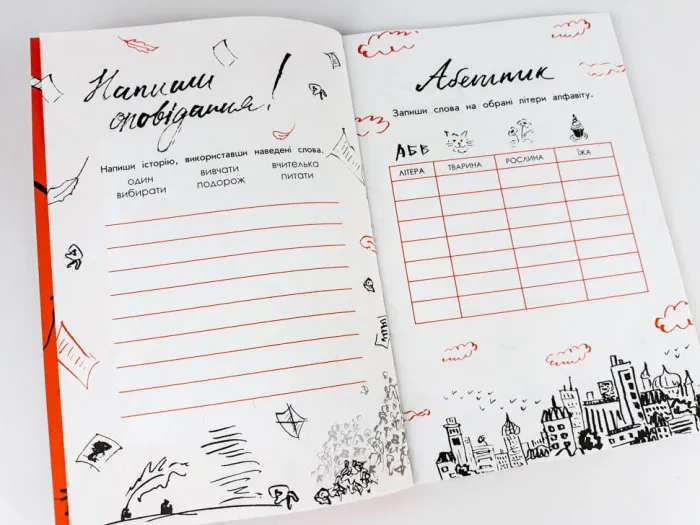 Напиши
оповідання!
Напиши історію, використавши наведені слова.
один вивчати вчителька
вибирати подорож питати
Абетник
Запиши слова на обрані літери алфавіту.
АБВ
ЛІТЕРА ТВАРИНА РОСЛИНА ЇЖА